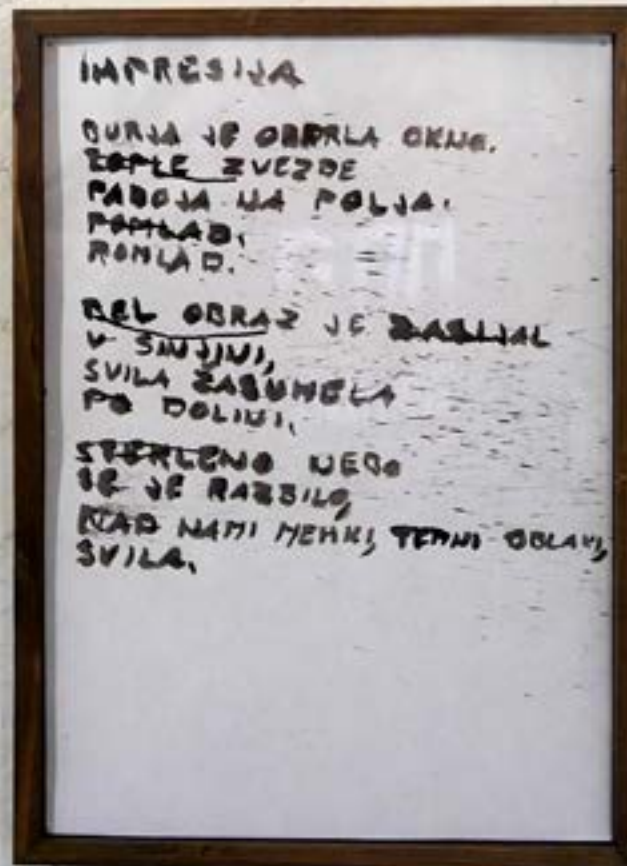 IMPRESIJA
BURJA JE ODPRLA OKNO.
TOPLE ZVEZDE
PADAJA NA POLJA.
POMLAD.
POMLAD.
BEL OBRAZ JE ZASIJAL
V SINJINI,
SVILA ZAŠUMELA
PO DOLINI.
STEKLENO NEBO
SE JE RAZBILO,
NAD NAMI MEHKI, TEMNI OBLAKI,
SVILA.